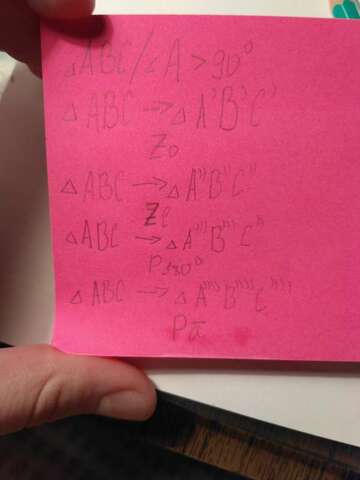 △ABC/∠A>90°
△ABC→△A'B'C'
Zo
△ABC→△A''B''C''
Zl
△ABC→△A'''B'''C'''
△ABC→△A''''B''''C''''
Pā